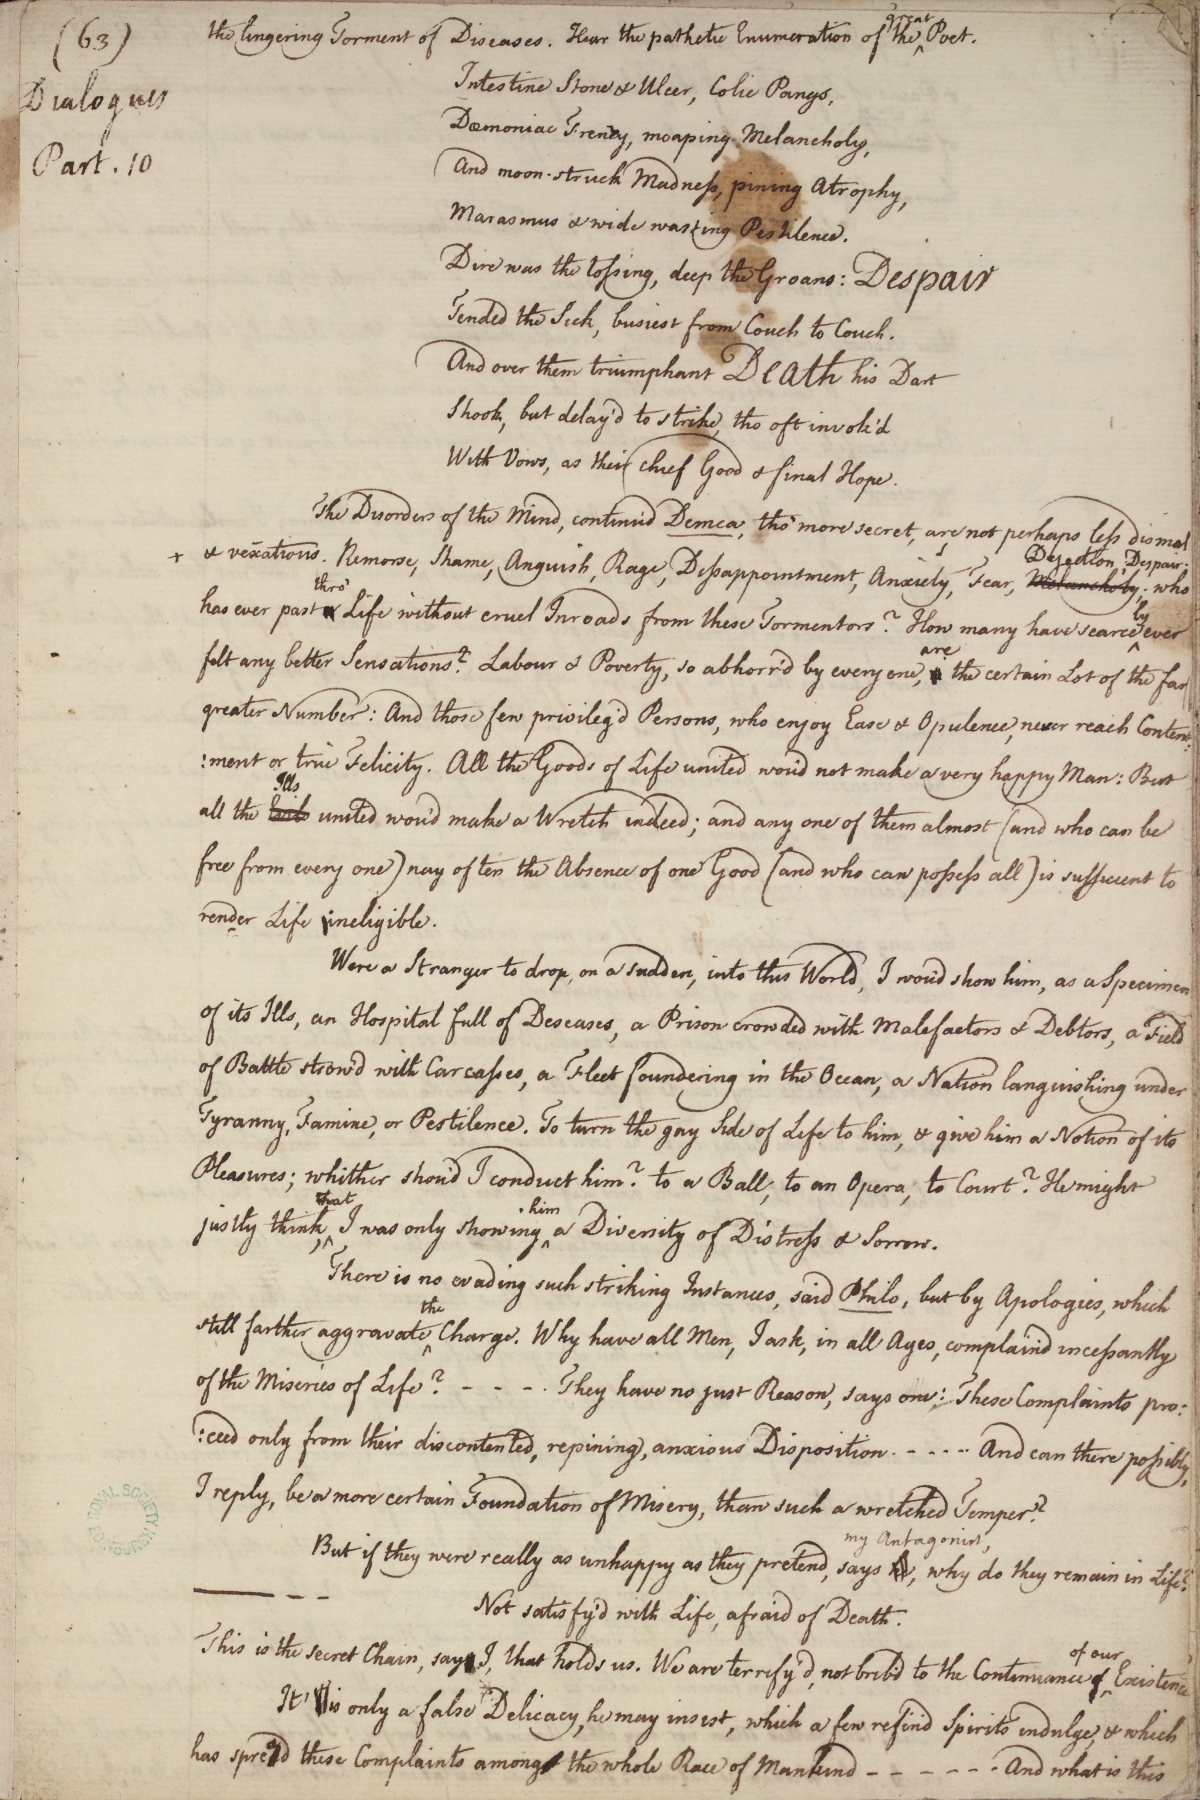 (63)
Dialogues
Part. 10
the lingering Torment of Diseases. Hear the pathetic Enumeration of the great Poet.
Intestine Stone & Ulcer, Colic Pangs,
Dæmoniac Frenzy, moaping Melancholy,
And moon-struck Madness, pining Atrophy,
Marasmus & wide wasting Pestilence.
Dire was the tossing, deep the Groans: Despair
Tended the Sick, busiest from Couch to Couch.
And over them triumphant Death his Dart
Shook, but delay'd to strike, tho oft invok'd
With Vows, as their chief Good & final Hope.
The Disorders of the Mind, continu'd Demea, tho' more secret, are not perhaps less dismal
+ & vexatious. Remorse, Shame, Anguish, Rage, Dissappointment, Anxiety, Fear, Melancholy, Dejection, Despair: who
has ever past thro' Life without cruel Inroads from these Tormentors? How many have scarcely ever
felt any better Sensations? Labour & Poverty, so abhorr'd by every one, are the certain Lot of the far
greater Number: And those few privileg'd Persons, who enjoy Ease & Opulence, never reach Content:
:ment or true Felicity. All the Goods of Life united wou'd not make a very happy Man: But
all the Evils Ills united wou'd make a Wretch indeed; and any one of them almost (and who can be
free from every one) nay often the Absence of one Good (and who can possess all) is sufficient to
render Life ineligible.
Were a Stranger to drop, on a sudden, into this World, I wou'd show him, as a Specimen
of its Ills, an Hospital full of Deseases, a Prison crowded with Malefactors & Debtors, a Field
of Battle strow'd with Carcasses, a Fleet floundering in the Ocean, a Nation languishing under
Tyranny, Famine, or Pestilence. To turn the gay Side of Life to him, & give him a Notion of its
Pleasures; whither shou'd I conduct him? to a Ball, to an Opera, to Court? He might
justly think, that I was only showing him a Diversity of Distress & Sorrow.
There is no evading such striking Instances, said Philo, but by Apologies, which
still farther aggravate the Charge. Why have all Men, I ask, in all Ages, complain'd incessantly
of the Miseries of Life? - - - . They have no just Reason, says one: These Complaints pro:
:ceed only from their discontented, repining, anxious Disposition. - - - - And can there possibly,
I reply, be a more certain Foundation of Misery, than such a wretched Temper?
But if they were really as unhappy as they pretend, says my Antagonist, why do they remain in Life?
Not satisfy'd with Life, afraid of Death.
This is the secret Chain, say I, that holds us. We are terrify'd, not brib'd to the Continuance of our Existence
It is only a false Delicacy, he may insist, which a few refin'd Spirits indulge, & which
has spread these Complaints among the whole Race of Mankind - - - - - - And what is this